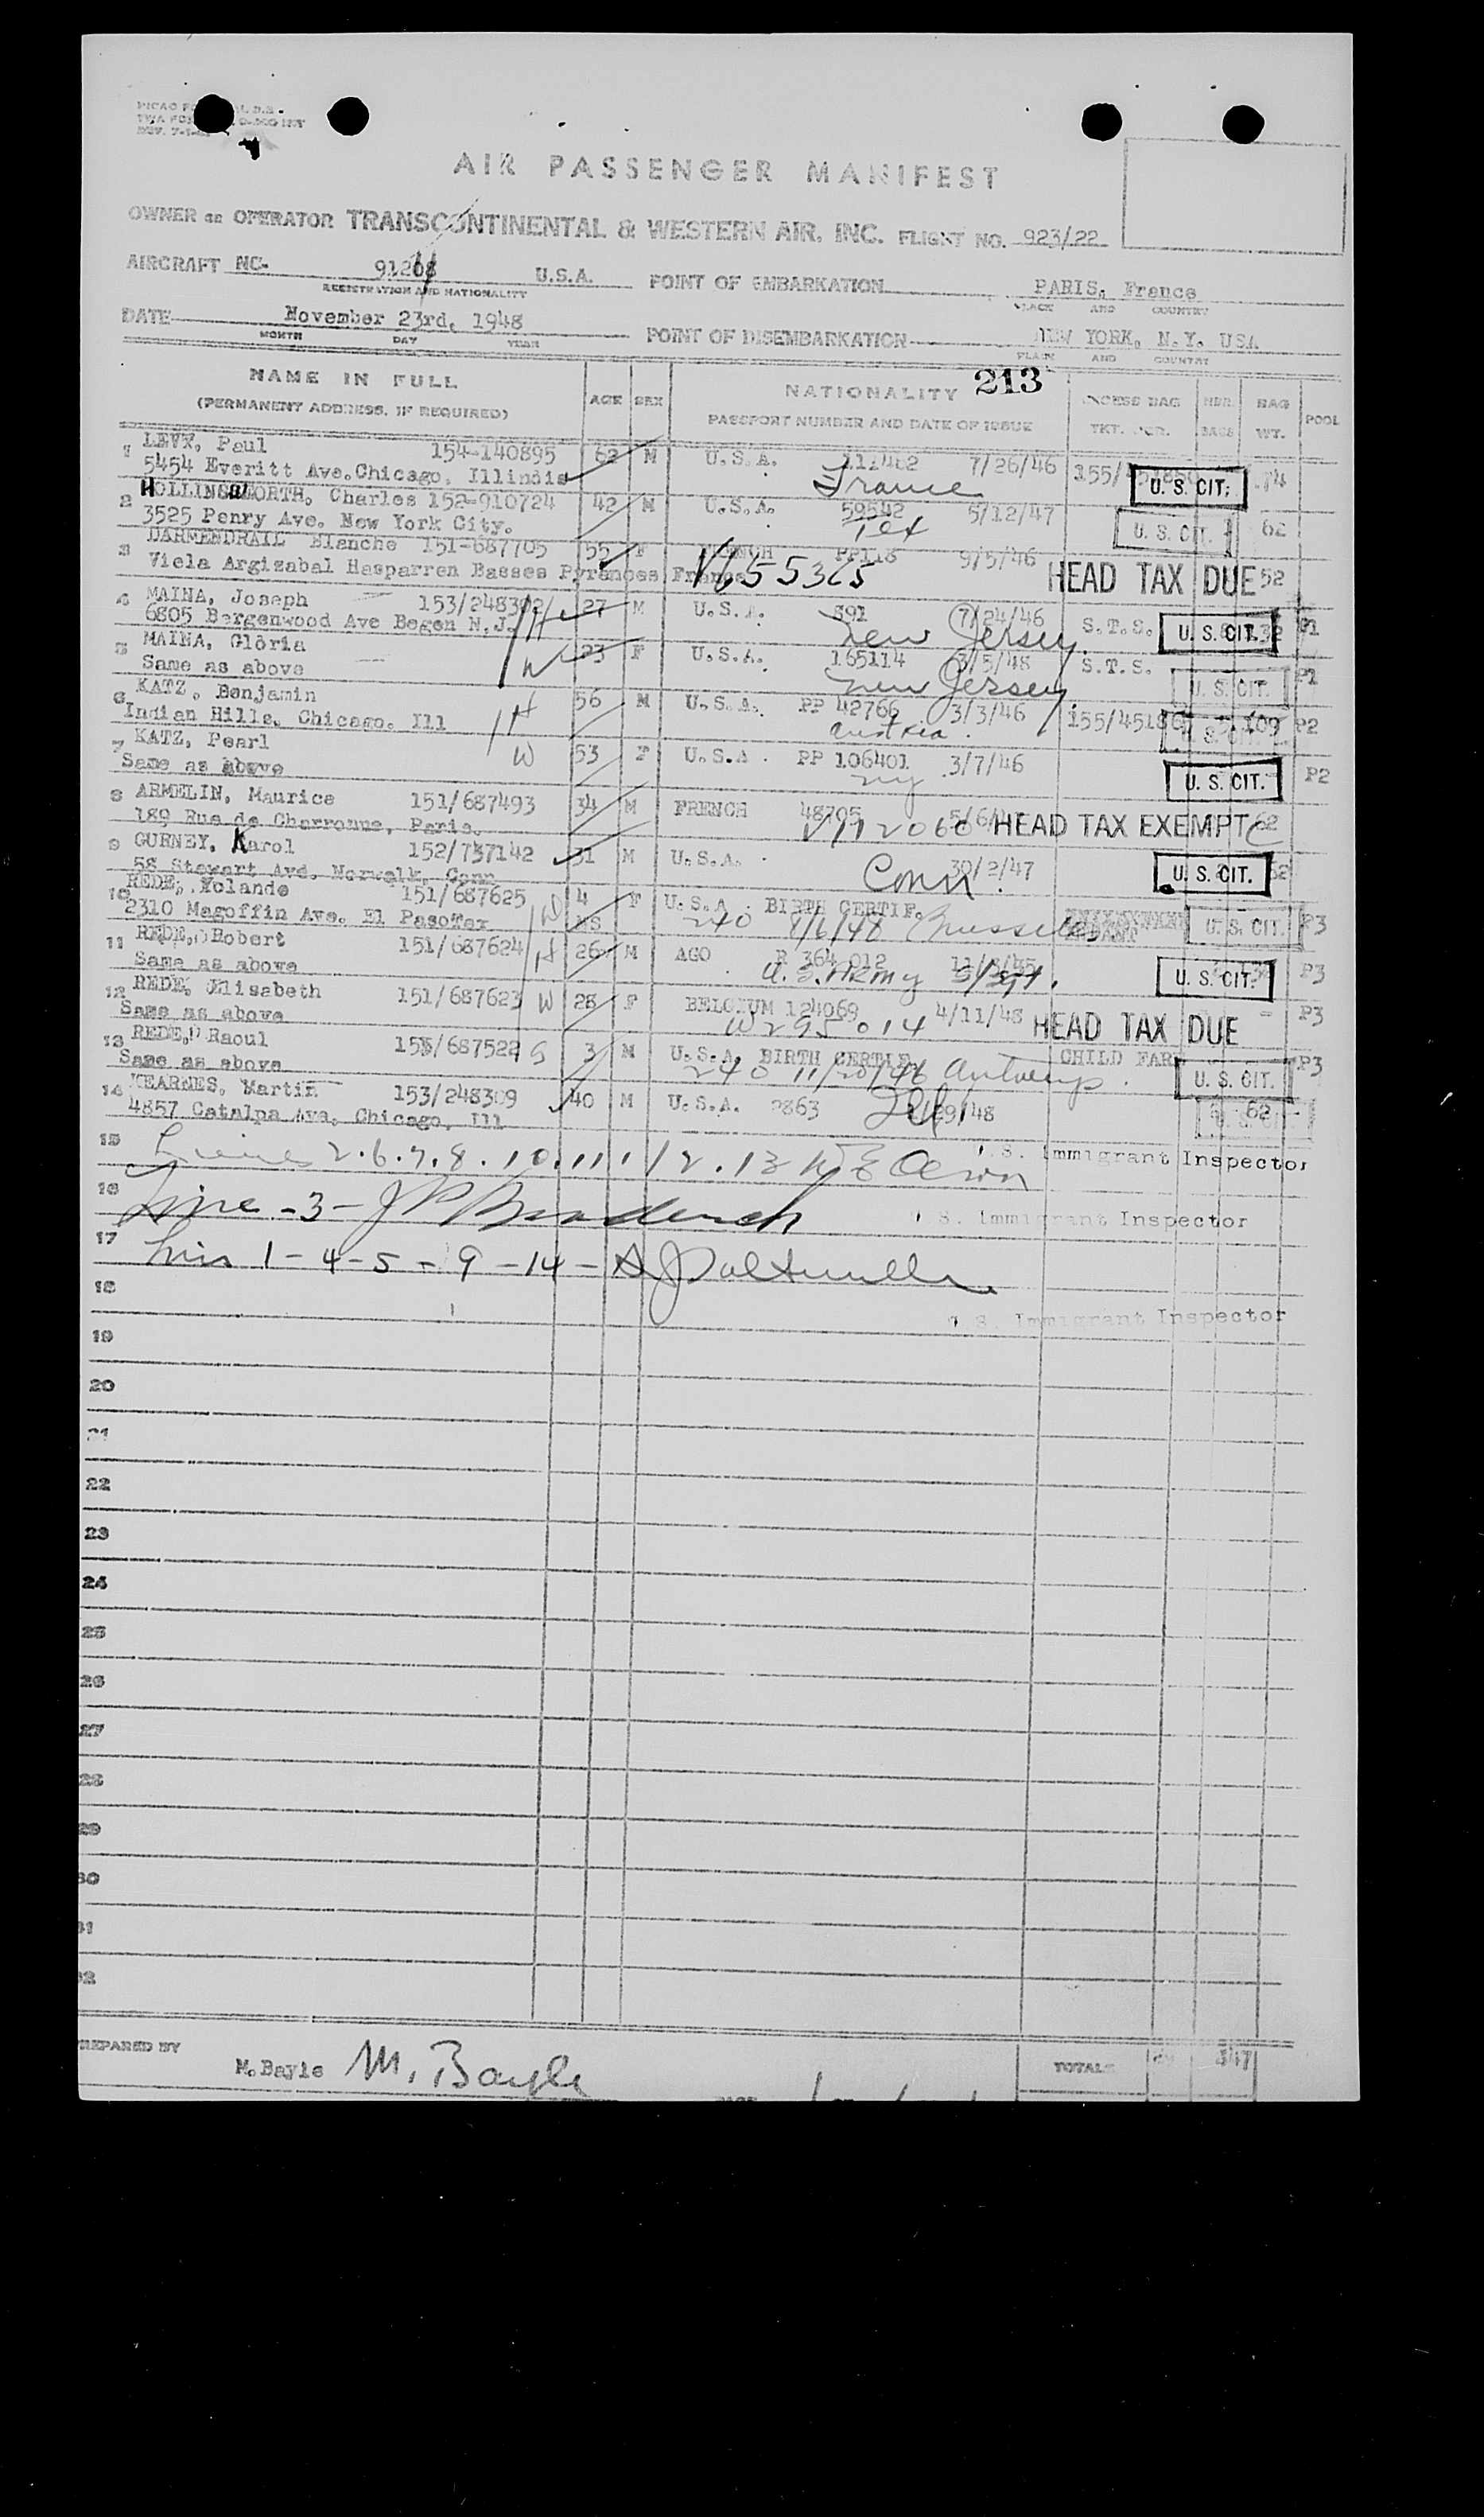 AIR PASSENGER MANIFEST
OWNER OR OPERATOR TRANSCONTINENTAL & WESTERN AIR, INC. FLIGHT NO. 923/22
AIRCRAFT NC- U.S.A. POINT OF EMBARKATION PARIS, France
REGISTRATION AND NATIONALITY PLACE AND COUNTRY
DATE November 23rd, 1948 POINT OF DISEMBARKATION NEW YORK, N.Y. USA
MONTH DAY YEAR PLACE AND COUNTRY
NAME IN FULL AGE SEX NATIONALITY 213 EXCESS BAG NBR. BAG POOL
(PERMANENT ADDRESS, IF REQUIRED) PASSPORT NUMBER AND DATE OF ISSUE TKT. BAGS WT.
1 LEVY, Paul 154-140895 62 M U.S.A. 7/26/46 155/ U. S. CIT. 74
5454 Everitt Ave. Chicago, Illinois France
2 HOLLINGSWORTH, Charles 152-910724 42 M U.S.A. 59542 5/12/47 U. S. CIT. 62
3525 Penry Ave. New York City. Tex
3 DARMENDRAIL Blanche 151-687705 55 F FRENCH PP118 9/5/46 HEAD TAX DUE 52
Viela Argizabal Hasparren Basses Pyrances France
4 MAINA, Joseph 153/248302 H 27 M U.S.A. 891 7/24/46 S.T.S. U. S. CIT. P1
6805 Bergenwood Ave Begen N.J. New Jersey
5 MAINA, Gloria W 23 F U.S.A. 165114 3/5/48 S.T.S. U. S. CIT. P1
Same as above New Jersey
6 KATZ, Benjamin H 56 M U.S.A. PP 42766 3/3/46 155/45186 109 P2
Indian Hills, Chicago, Ill Austria
7 KATZ, Pearl W 53 F U.S.A. PP 106401 3/7/46 U. S. CIT. P2
Same as above NY
8 ARMELIN, Maurice 151/687493 34 M FRENCH 48705 HEAD TAX EXEMPT 62
189 Rue de Charronne, Paris.
9 GURNEY, Karol 152/737142 31 M U.S.A. 30/2/47 U. S. CIT.
58 Stewart Ave. Norwalk, Conn Conn.
10 REDE, Yolande 151/687625 4 MS F U.S.A. BIRTH CERTIF. U. S. CIT. P3
2310 Magoffin Ave. El Paso Tex 240 8/6/48 Brussels
11 REDE, Robert 151/687624 H 26 M AGO R 364 012 U. S. CIT. P3
Same as above U.S. Army S/Sgt.
12 REDE, Elisabeth 151/687623 W 28 F BELGIUM 124069 4/11/48 HEAD TAX DUE P3
Same as above W295014
13 REDE, Raoul S 3 M U.S.A. BIRTH CERTIF. CHILD FARE U. S. CIT. P3
Same as above 240 11/20/46 Antwerp.
14 KEARNES, Martin 40 M U.S.A. 62
4857 Catalpa Ave, Chicago, Ill
15 Lines 2.6.7.8.10.11.12.13 U.S. Immigrant Inspector
16 Line -3- U.S. Immigrant Inspector
17 Lines 1-4-5-9-14-
18 U.S. Immigrant Inspector
19
20
21
22
23
24
25
26
27
28
29
30
31
32
PREPARED BY M. Bayle M. Bayle TOTALS